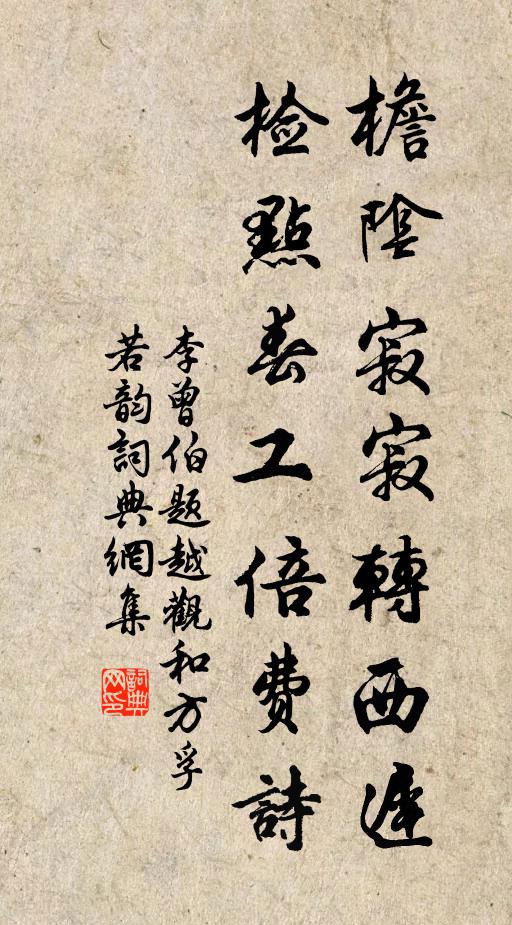 檐陰寂寂轉西遲
檢點春工倍費詩
李曾伯題越觀和方孚
若韵詞典網集
詞典网印